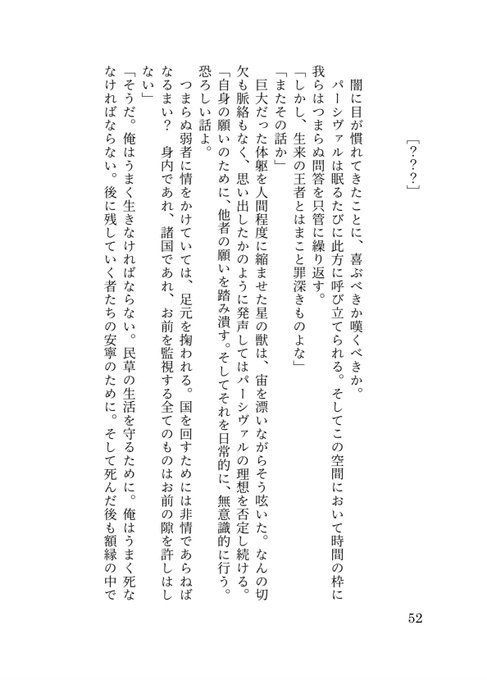 [???]
闇に目が慣れてきたことに、喜ぶべきか嘆くべきか。
パーシヴァルは眠るたびに此方に呼び立てられる。そしてこの空間において時間の枠に
我らはつまらぬ問答を只管に繰り返す。
「しかし、生来の王者とはまこと罪深きものよな」
「またその話か」
巨大だった体躯を人間程度に縮ませた星の獣は、宙を漂いながらそう呟いた。なんの切
欠も脈絡もなく、思い出したかのように発声してはパーシヴァルの理想を否定し続ける。
「自身の願いのために、他者の願いを踏み潰す。そしてそれを日常的に、無意識的に行う。
恐ろしい話よ。
つまらぬ弱者に情をかけていては、足元を掬われる。国を回すためには非情であらねば
なるまい? 身内であれ、諸国であれ、お前を監視する全てのものはお前の隙を許しはし
ない」
「そうだ。俺はうまく生きなければならない。民草の生活を守るために。俺はうまく死な
なければならない。後に残していく者たちの安寧のために。そして死んだ後も額縁の中で
52